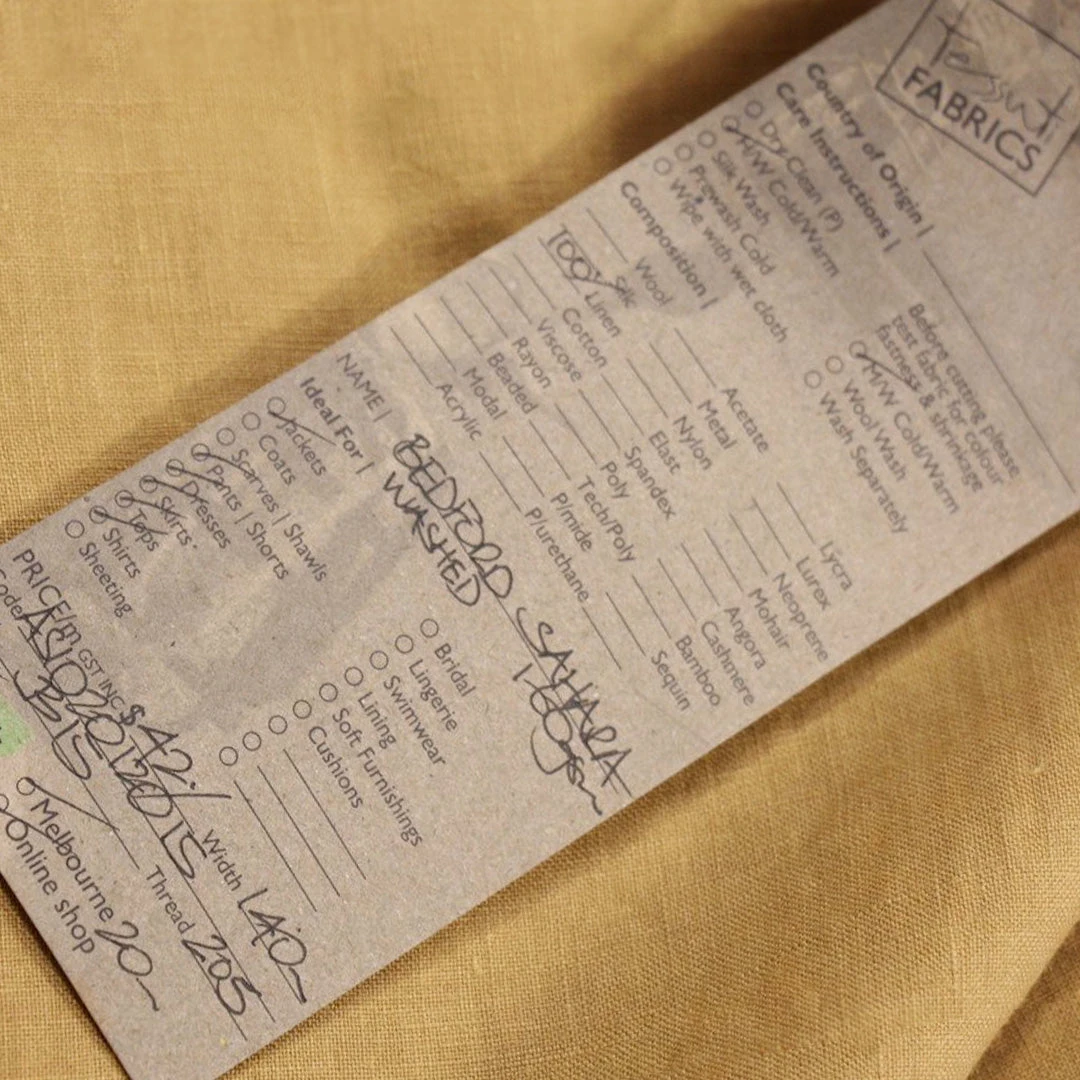 Tessuti
FABRICS
Country of Origin |
Care Instructions |
Dry Clean (P)
H/W Cold/Warm
Silk Wash
Prewash Cold
Wipe with wet cloth
Before cutting please
test fabric for colour
fastness & shrinkage
M/W Cold/Warm
Wool Wash
Wash Separately
Composition |
Wool
Silk
100% Linen
Cotton
Viscose
Rayon
Beaded
Modal
Acrylic
Acetate
Metal
Nylon
Elast
Spandex
Poly
Tech/Poly
P/mide
P/urethane
Lycra
Lurex
Neoprene
Mohair
Angora
Cashmere
Bamboo
Sequin
NAME | BEDFORD SAHARA
WASHED 160gsm
Ideal For |
Jackets
Coats
Scarves | Shawls
Pants | Shorts
Dresses
Skirts
Tops
Shirts
Sheeting
Bridal
Lingerie
Swimwear
Lining
Soft Furnishings
Cushions
PRICE/m GST INC $42.- Width 140
Thread 205
Melbourne 20
Online shop